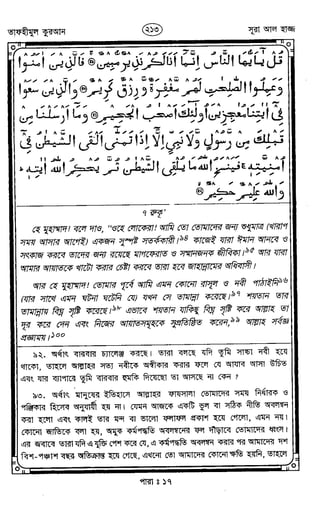 তাফহীমুল কুরআন
২১৩
সূরা আল হাজ্জ
قُلْ يٰٓاَيُّهَا النَّاسُ اِنَّمَآ اَنَا لَكُمْ نَذِيْرٌ مُّبِيْنٌ ۝ فَالَّذِيْنَ اٰمَنُوْا
وَعَمِلُوا الصّٰلِحٰتِ لَهُمْ مَّغْفِرَةٌ وَّرِزْقٌ كَرِيْمٌ ۝ وَالَّذِيْنَ سَعَوْا
فِيْٓ اٰيٰتِنَا مُعٰجِزِيْنَ اُولٰٓئِكَ اَصْحٰبُ الْجَحِيْمِ ۝ وَمَآ اَرْسَلْنَا مِنْ
قَبْلِكَ مِنْ رَّسُوْلٍ وَّلَا نَبِيٍّ اِلَّآ اِذَا تَمَنّٰىٓ اَلْقَى الشَّيْطٰنُ فِيْٓ
اُمْنِيَّتِهٖ ۚ فَيَنْسَخُ اللّٰهُ مَا يُلْقِى الشَّيْطٰنُ ثُمَّ يُحْكِمُ اللّٰهُ اٰيٰتِهٖ ؕ
وَاللّٰهُ عَلِيْمٌ حَكِيْمٌ ۝
৭ রুকূ'
হে মুহাম্মাদ! বলে দাও, "ওহে লোকেরা! আমি তো তোমাদের জন্য শুধুমাত্র (খারাপ
সময় আসার আগেই) একজন সুস্পষ্ট সতর্ককারী।৯৪ কাজেই যারা ঈমান আনবে ও
সৎকাজ করবে তাদের জন্য রয়েছে মাগফেরাত ও সম্মানজনক জীবিকা।৯৫ আর যারা
আমার আয়াতকে খাটো করার চেষ্টা করবে তারা হবে জাহান্নামের অধিবাসী।
আর হে মুহাম্মাদ! তোমার পূর্বে আমি এমন কোনো রাসূল ও নবী পাঠাইনি৯৬
(যার সাথে এমন ঘটনা ঘটেনি যে) যখন সে তামান্না করেছে।৯৭ শয়তান তার
তামান্নায় বিঘ্ন সৃষ্টি করেছে।৯৮ এভাবে শয়তান যাকিছু বিঘ্ন সৃষ্টি করে আল্লাহ তা
দূর করে দেন এবং নিজের আয়াতসমূহকে সুপ্রতিষ্ঠিত করেন,৯৯ আল্লাহ সর্বজ্ঞ
প্রজ্ঞাময়।১০০
৯২. অর্থাৎ বারবার চ্যালেঞ্জ করছে। তারা বলছে যদি তুমি সাচ্চা নবী হয়ে
থাকো, তাহলে আল্লাহর সত্য নবীকে অস্বীকার করার ফলে যে আযাব আসা উচিত
এবং যার ব্যাপারে তুমি বারবার হুমকি দিয়েছো তা আসছে না কেন?
৯৩. অর্থাৎ মানুষের ইতিহাসে আল্লাহর ফায়সালা তোমাদের সময় নির্ধারক ও
পঞ্জিকার হিসেবে অনুযায়ী হয় না। যেমন আজকে একটি ভুল বা সঠিক নীতি অবলম্বন
করা হলো এবং কালই তার মন্দ বা ভালো ফলাফল প্রকাশ হয়ে গেলো, এমন নয়।
কোনো জাতিকে বলা হয়, অমুক কর্মপদ্ধতি অবলম্বনের ফল দাঁড়াবে তোমাদের ধ্বংস।
এর জবাবে তারা যদি এ যুক্তি পেশ করে যে, এ কর্মপদ্ধতি অবলম্বন করার পর আমাদের দশ
বিশ-পঞ্চাশ বছর অতিক্রান্ত হয়ে গেছে, এখনো তো আমাদের কোনো ক্ষতি হয়নি, তাহলে
পারা : ১৭